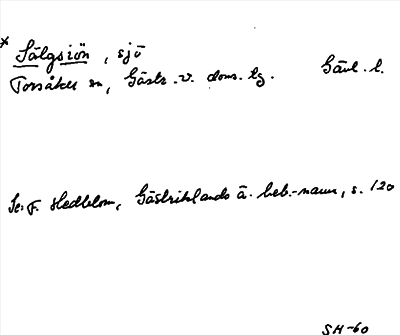 * Sälgsjön, sjö
Torsåker sn, Gästr. v. doms. tg. Gävl. l.
Se: F. Hedblom, Gästriklands ä. beb.-namn, s. 120
SH-60